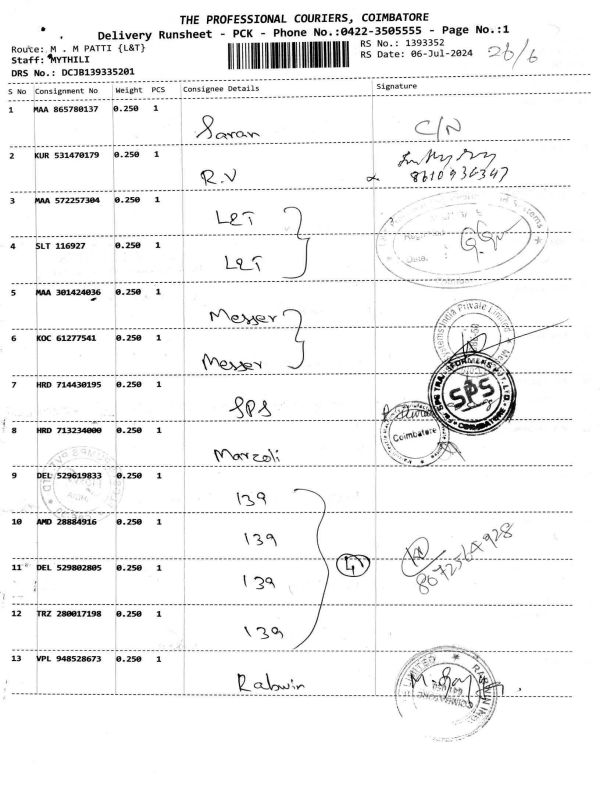 THE PROFESSIONAL COURIERS, COIMBATORE
Delivery Runsheet - PCK - Phone No.:0422-3505555 - Page No.:1
Route: M . M PATTI {L&T} RS No.: 1393352 26/6
Staff: MYTHILI RS Date: 06-Jul-2024
DRS No.: DCJB139335201
S No Consignment No Weight PCS Consignee Details Signature
1 MAA 865780137 0.250 1 Saran C/N
2 KUR 531470179 0.250 1 R.V
3 MAA 572257304 0.250 1 L&T
4 SLT 116927 0.250 1 L&T
5 MAA 301424036 0.250 1 Messer
6 KOC 61277541 0.250 1 Messer
7 HRD 714430195 0.250 1 SPS
SPS TRANSFORMERS PVT. LTD. SPS COIMBATORE
8 HRD 713234000 0.250 1 Marzoli
Coimbatore
9 DEL 529619833 0.250 1 139
10 AMD 28884916 0.250 1 139
11 DEL 529802805 0.250 1 139
12 TRZ 280017198 0.250 1 139
13 VPL 948528673 0.250 1 Rabwin